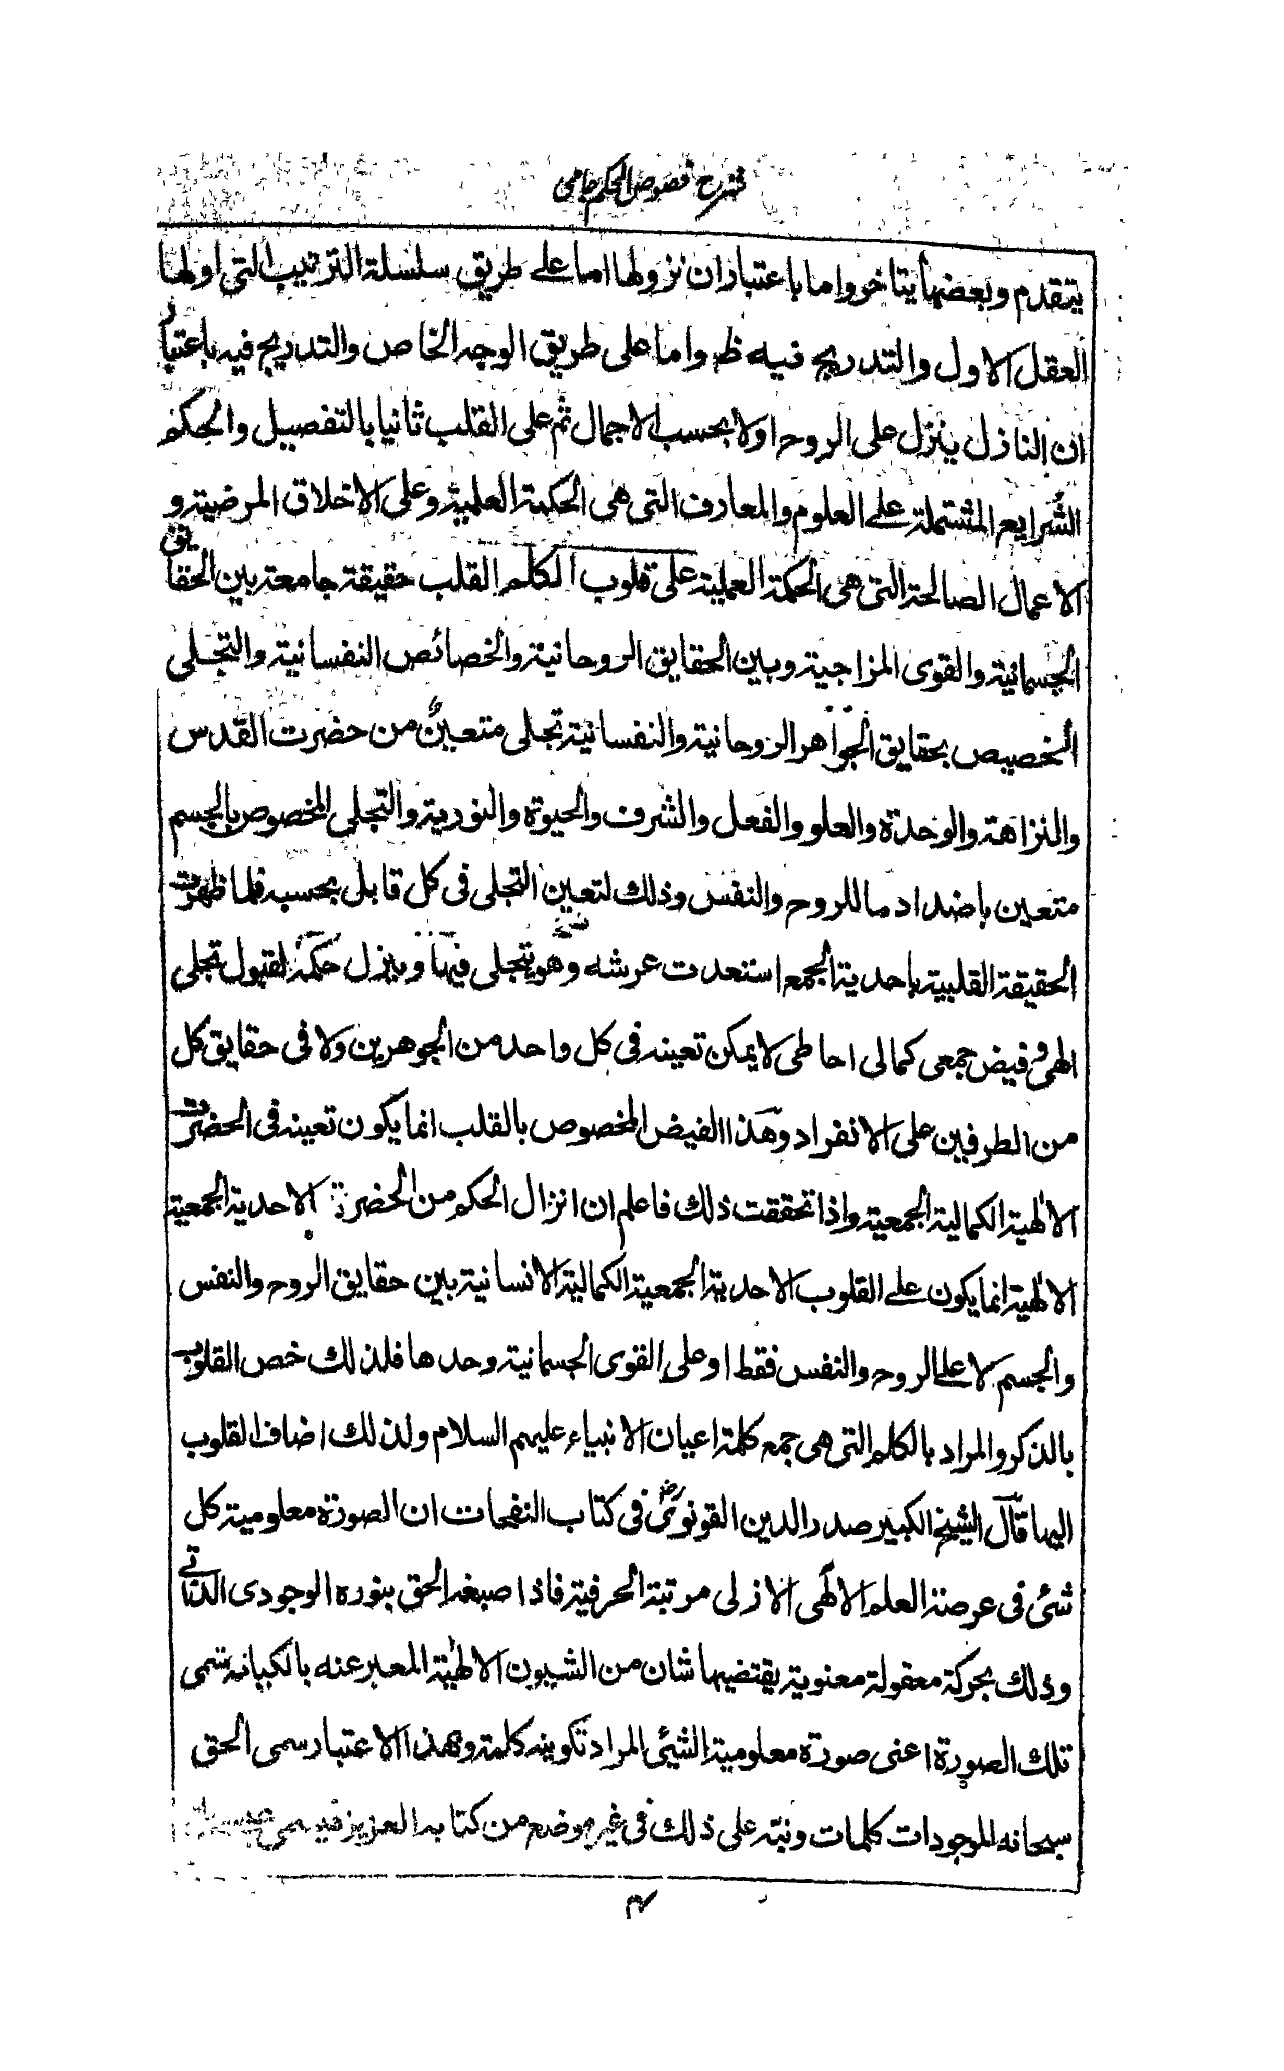 شرح فصوص الحكم جامى
يتقدم وبعضها يتاخر واما باعتبار ان نزولها اما على طريق سلسلة الترتيب التى اولها
العقل الاول والتدريج فيه ظ واما على طريق الوجه الخاص والتدريج فيه باعتبار
ان النازل ينزل على الروح اولا بحسب الاجمال ثم على القلب ثانيا بالتفصيل والحكم
الشرايع المشتملة على العلوم والمعارف التى هى الحكمة العلمية وعلى الاخلاق المرضية و
الاعمال الصالحة التى هى الحكمة العملية على قلوب الكلم القلب حقيقة جامعة بين الحقايق
الجسمانية والقوى المزاجية وبين الحقايق الروحانية والخصائص النفسانية والتجلى
الخصيص بحقايق الجواهر الروحانية والنفسانية تجلى متعين من حضرت القدس
والنزاهة والوحدة والعلو والفعل والشرف والحيوة والنورية والتجلى المخصوص بالجسم
متعين باضداد ما للروح والنفس وذلك لتعين التجلى فى كل قابل بحسبه فلما ظهرت
الحقيقة القلبية باحدية الجمع استعدت عرشه وهو يتجلى فيها وينزل حكمة لقبول تجلى
الهى وفيض جمعى كمالى احاطى لا يمكن تعينه فى كل واحد من الجوهرين ولا فى حقايق كل
من الطرفين على الانفراد وهذا الفيض المخصوص بالقلب انما يكون تعينه فى الحضرت
الالهية الكمالية الجمعية واذا تحققت ذلك فاعلم ان انزال الحكم من الحضرة الاحدية الجمعية
الالهية انما يكون على القلوب الاحدية الجمعية الكمالية الانسانية بين حقايق الروح والنفس
والجسم لا على الروح والنفس فقط او على القوى الجسمانية وحدها فلذلك خص القلوب
بالذكر والمراد بالكلم التى هى جمع كلمة اعيان الانبياء عليهم السلام ولذلك اضاف القلوب
اليها قال الشيخ الكبير صدر الدين القونوى رض فى كتاب النفحات ان الصورة معلومية كل
شئ فى عرصة العلم الالهى الازلى مرتبة الحرفية فاذا صبغه الحق بنوره الوجودى الذاتى
وذلك بحركة معقولة معنوية يقتضيها شان من الشيون الالهية المعبر عنه بالكبانه سمى
تلك الصورة اعنى صورة معلومية الشئ المراد تكوينه كلمة وهذا الاعتبار سمى الحق
سبحانه الموجودات كلمات ونبه على ذلك فى غير موضع من كتابه العزيز فسمى